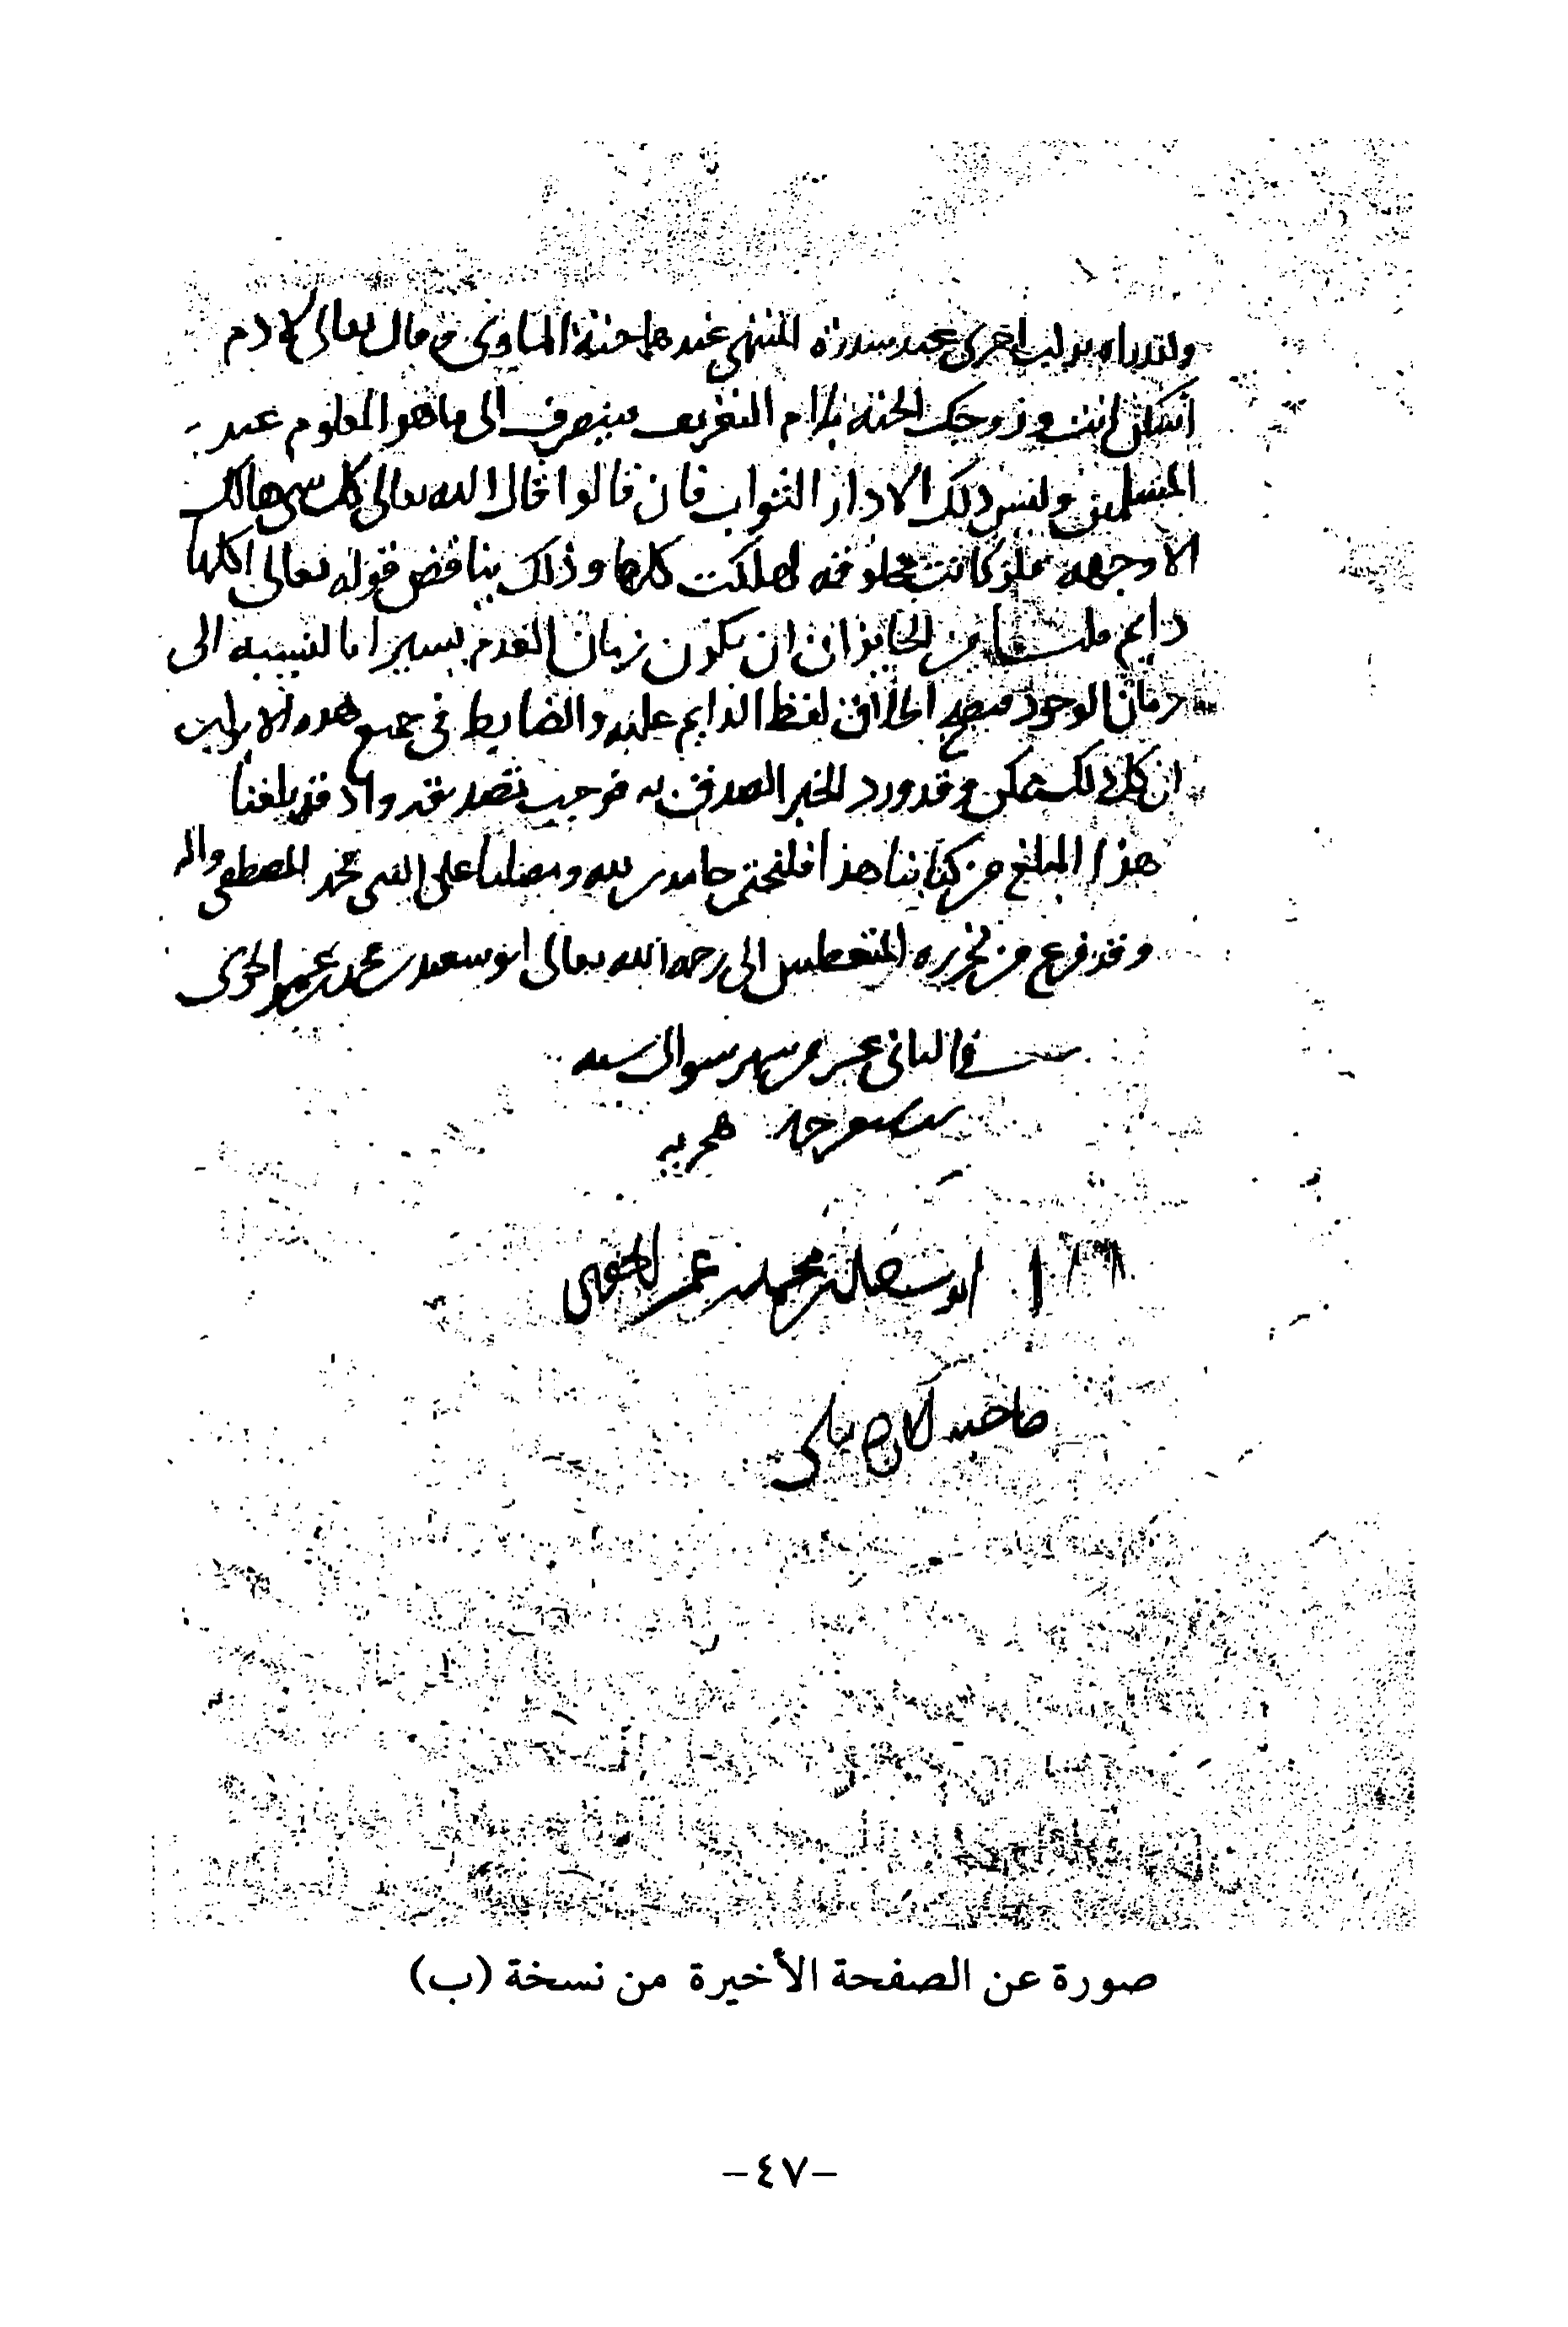 ولقد راه نزلة اخرى عند سدرة المنتهى عندها جنة الماوى وقال تعالى لادم
اسكن انت وزوجك الجنة بلام التعريف فينصرف الى ما هو المعلوم عند
المسلمين وليس ذلك الا دار الثواب فان قالوا قال الله تعالى كل شي هالك
الا وجهه فلو كانت مخلوقه لهلكت كلها وذلك يناقض قوله تعالى اكلها
دايم قلنا من الجايز ان يكون زمان العدم يسيرا بالنسبه الى
زمان الوجود فيصح اطلاق لفظ الدايم عليه والضابط في جميع هذه الابواب
ان كل ذلك ممكن وقد ورد الخبر الصدق به فوجب تصديقه واذ قد بلغنا
هذا المبلغ من كتابنا هذا فلنختم حامدين لله ومصليا على النبي محمد المصطفى واله
وقد فرغ من تحريره المتعطش الى رحمه الله تعالى ابو سعد بن محمد بن عمر الخوى
في الثاني عشر من شهر شوال سنه
هجريه
محمد بن عمر
صاحبه
صورة عن الصفحة الأخيرة من نسخة (ب)
-٤٧-